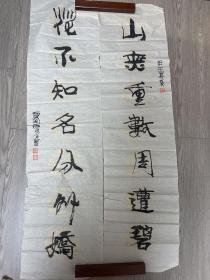 山无重数周遭碧
花不知名分外娇